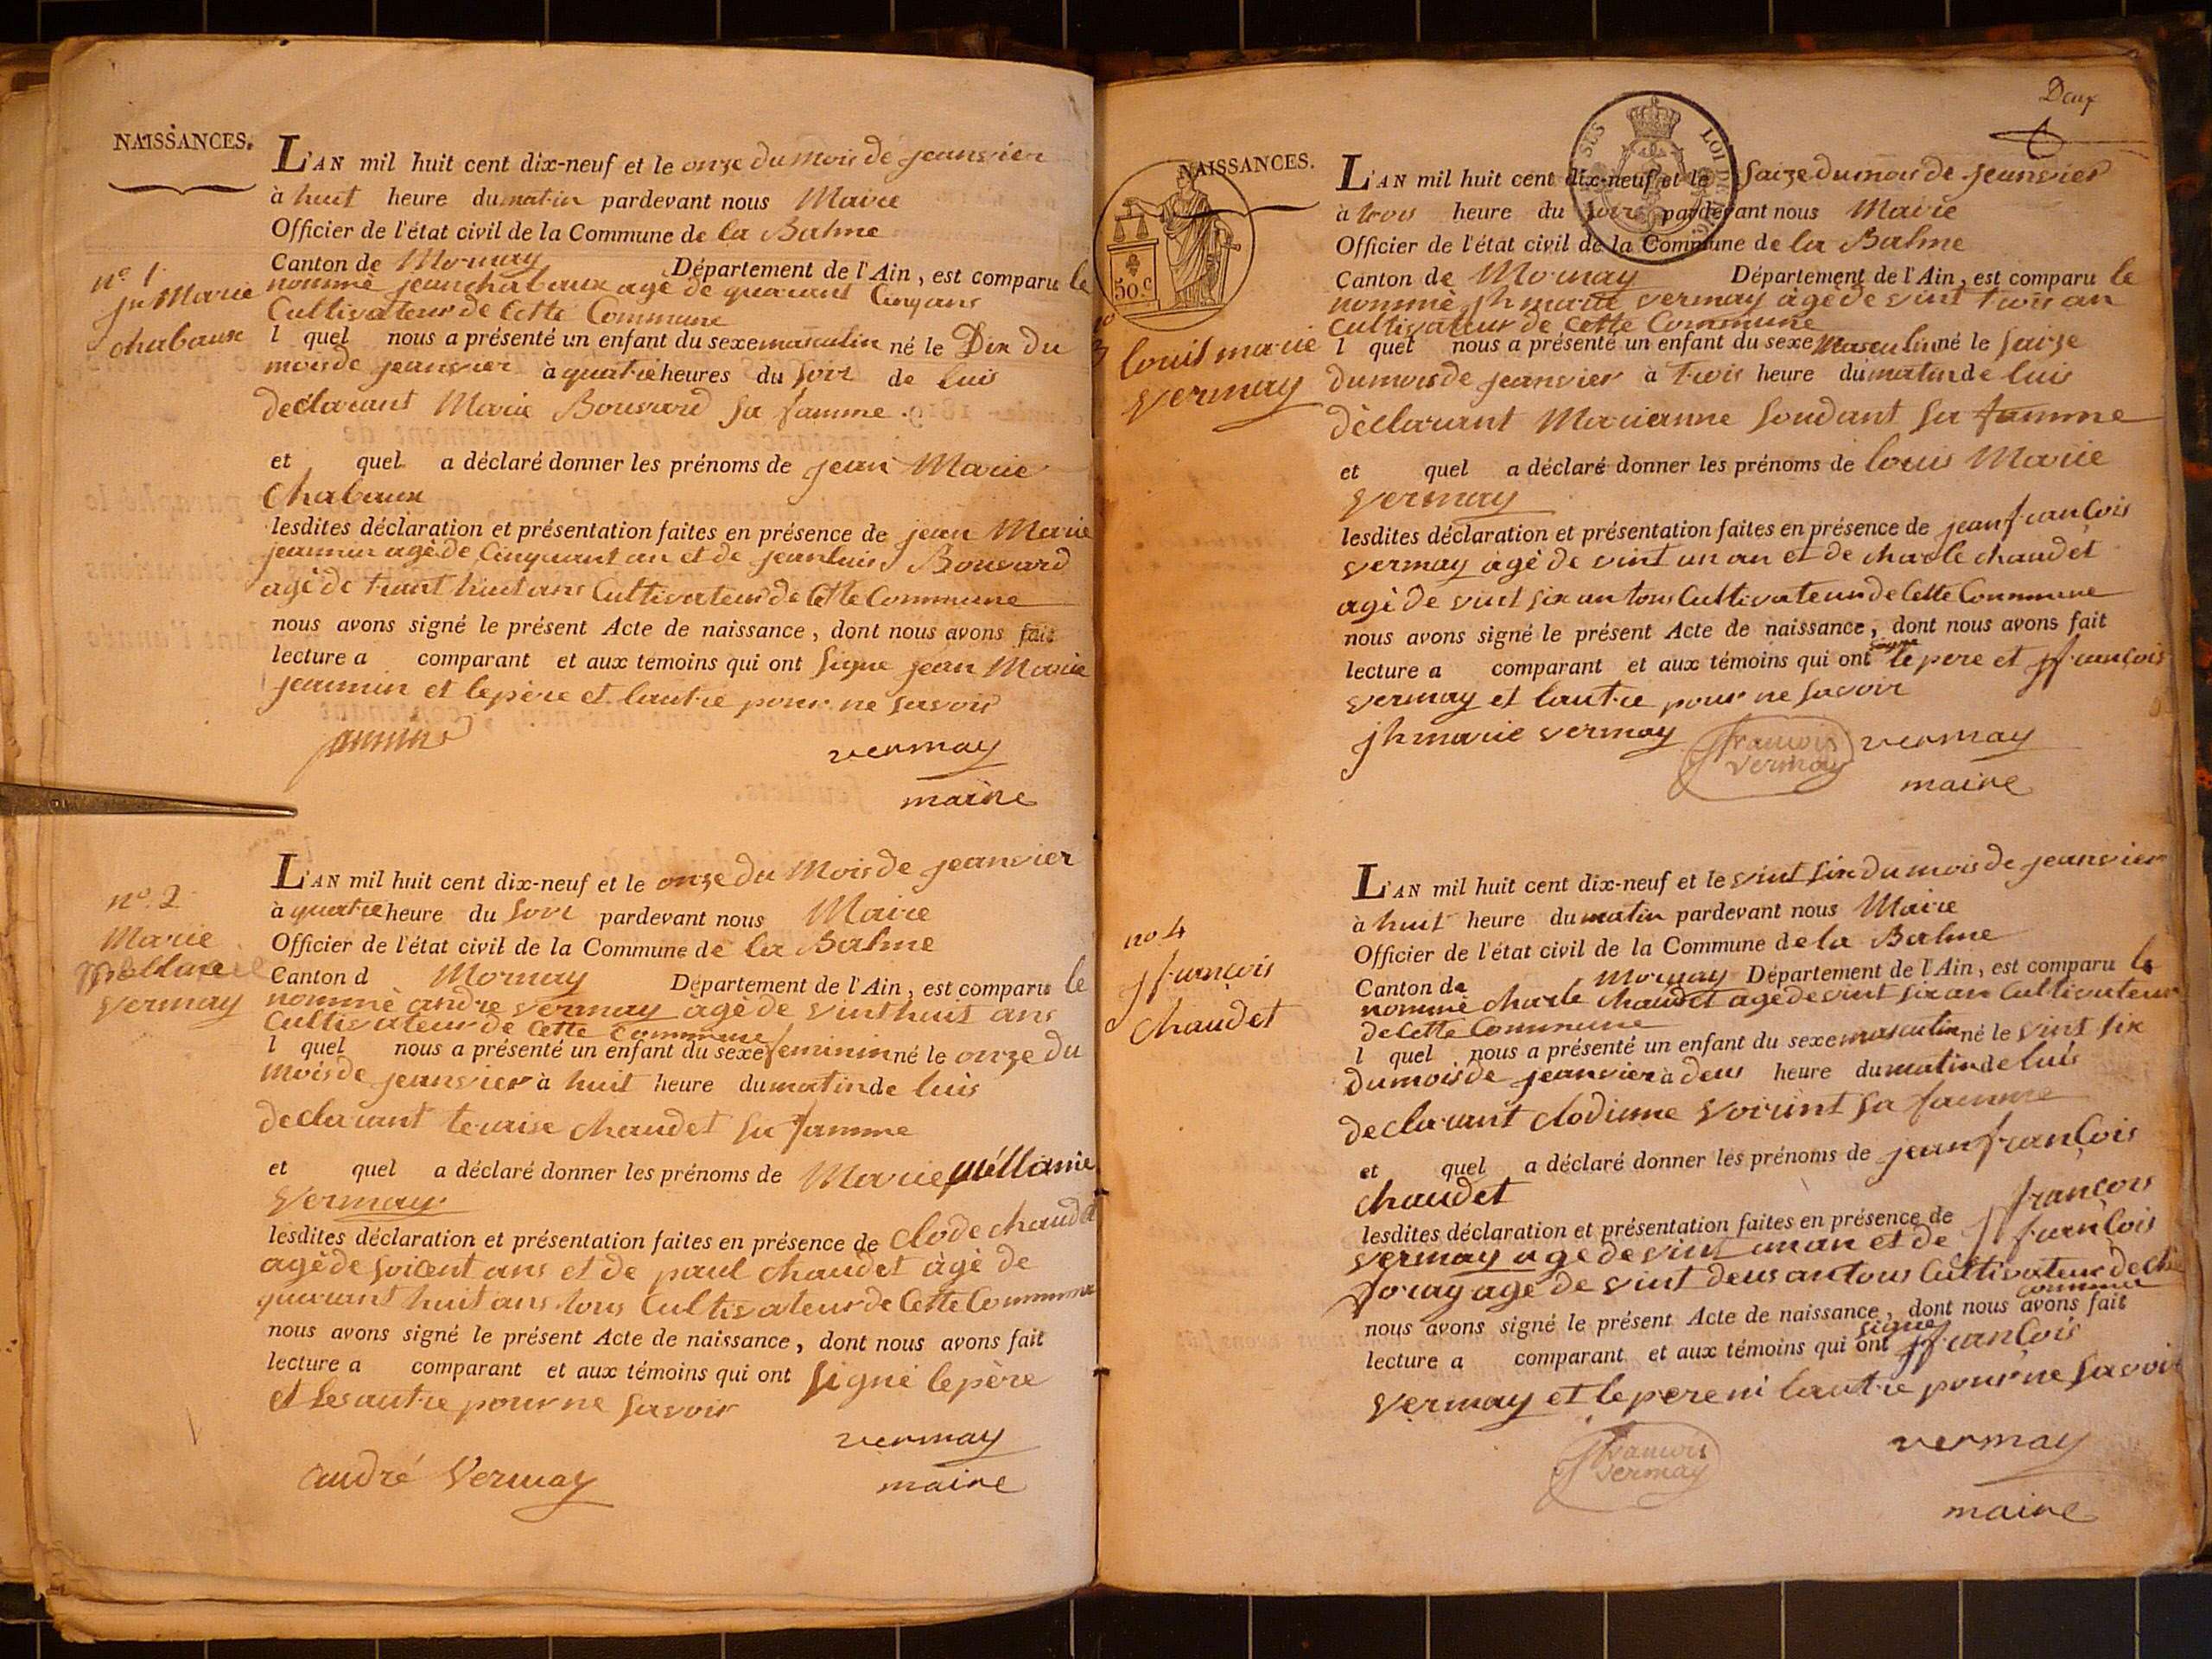 NAISSANCES.
L'AN mil huit cent dix-neuf et le onze du mois de jeanvier
à huit heure du matin pardevant nous Maire
Officier de l'état civil de la Commune de la Balme
Canton de Mornay Département de l'Ain, est comparu le
nommé jean chabaux agé de quarant Cinq ans
Cultivateur de Cette Commune
l quel nous a présenté un enfant du sexe masculin né le Dix du
mois de jeanvier à quatre heures du soir de luis
declarant Marie Bouvard sa famme
et quel a déclaré donner les prénoms de jean Marie
Chabaux
lesdites déclaration et présentation faites en présence de jean Marie
jeannin agé de Cinquant an et de jean luis Bouvard
agé de trant huit ans Cultivateur de Cette Commune
nous avons signé le présent Acte de naissance, dont nous avons fait
lecture a comparant et aux témoins qui ont signe jean Marie
jeannin et le père et lautre pour ne savoir
vermay
maire
n° 1
jn Marie
chabaux
L'AN mil huit cent dix-neuf et le onze du Mois de jeanvier
à quatre heure du soir pardevant nous Maire
Officier de l'état civil de la Commune de la Balme
Canton d Mornay Département de l'Ain, est comparu le
nommé andre vermay àgé de vint huit ans
Cultivateur de Cette Commune
l quel nous a présenté un enfant du sexe feminin né le onze du
mois de jeanvier à huit heure du matin de luis
declarant teraise chaudet sa famme
et quel a déclaré donner les prénoms de Marie méllanie
vermay
lesdites déclaration et présentation faites en présence de Clode chaudet
agé de soicent ans et de paul chaudet àgé de
quarant huit ans tous Cultivateur de Cette Commune
nous avons signé le présent Acte de naissance, dont nous avons fait
lecture a comparant et aux témoins qui ont signé le père
et les autre pour ne savoir
vermay
andré Vermay maire
n° 2
Marie
vermay
Deux
NAISSANCES.
50.c
L'AN mil huit cent dix-neuf et le saize du mois de jeanvier
à trois heure du soir pardevant nous Maire
Officier de l'état civil de la Commune de la Balme
Canton de Mornay Département de l'Ain, est comparu le
nommé jh marie vermay àgé de vint trois an
Cultivateur de Cette Commune
l quel nous a présenté un enfant du sexe Masculin né le saize
du mois de jeanvier à trois heure du matin de luis
déclarant Marianne soudant sa famme
et quel a déclaré donner les prénoms de louis Marie
vermay
lesdites déclaration et présentation faites en présence de jean françois
vermay àgé de vint un an et de charle chaudet
agé de vint six an tous Cultivateur de Cette Commune
nous avons signé le présent Acte de naissance, dont nous avons fait
lecture a comparant et aux témoins qui ont signe le pere et jfrançois
vermay et lautre pour ne savoir
jh marie vermay jfrancois vermay vermay
maire
louis marie
vermay
L'AN mil huit cent dix-neuf et le vint six du mois de jeanvier
à huit heure du matin pardevant nous Maire
Officier de l'état civil de la Commune de la Balme
Canton de Mornay Département de l'Ain, est comparu le
nommé charle chaudet agé de vint six an Cultivateur
de Cette Commune
l quel nous a présenté un enfant du sexe masculin né le vint six
du mois de jeanvier à deus heure du matin de luis
declarant clodinne voirint sa famme
et quel a déclaré donner les prénoms de jean françois
chaudet
lesdites déclaration et présentation faites en présence de jfrançois
vermay agé de vint un an et de jfrançois
agé de vint deus an tous Cultivateur de Cette
commune
nous avons signé le présent Acte de naissance, dont nous avons fait
lecture a comparant et aux témoins qui ont signe jfrançois
vermay et le pere ni lautre pour ne savoir
jfrancois vermay vermay
maire
no 4
jfrançois
chaudet